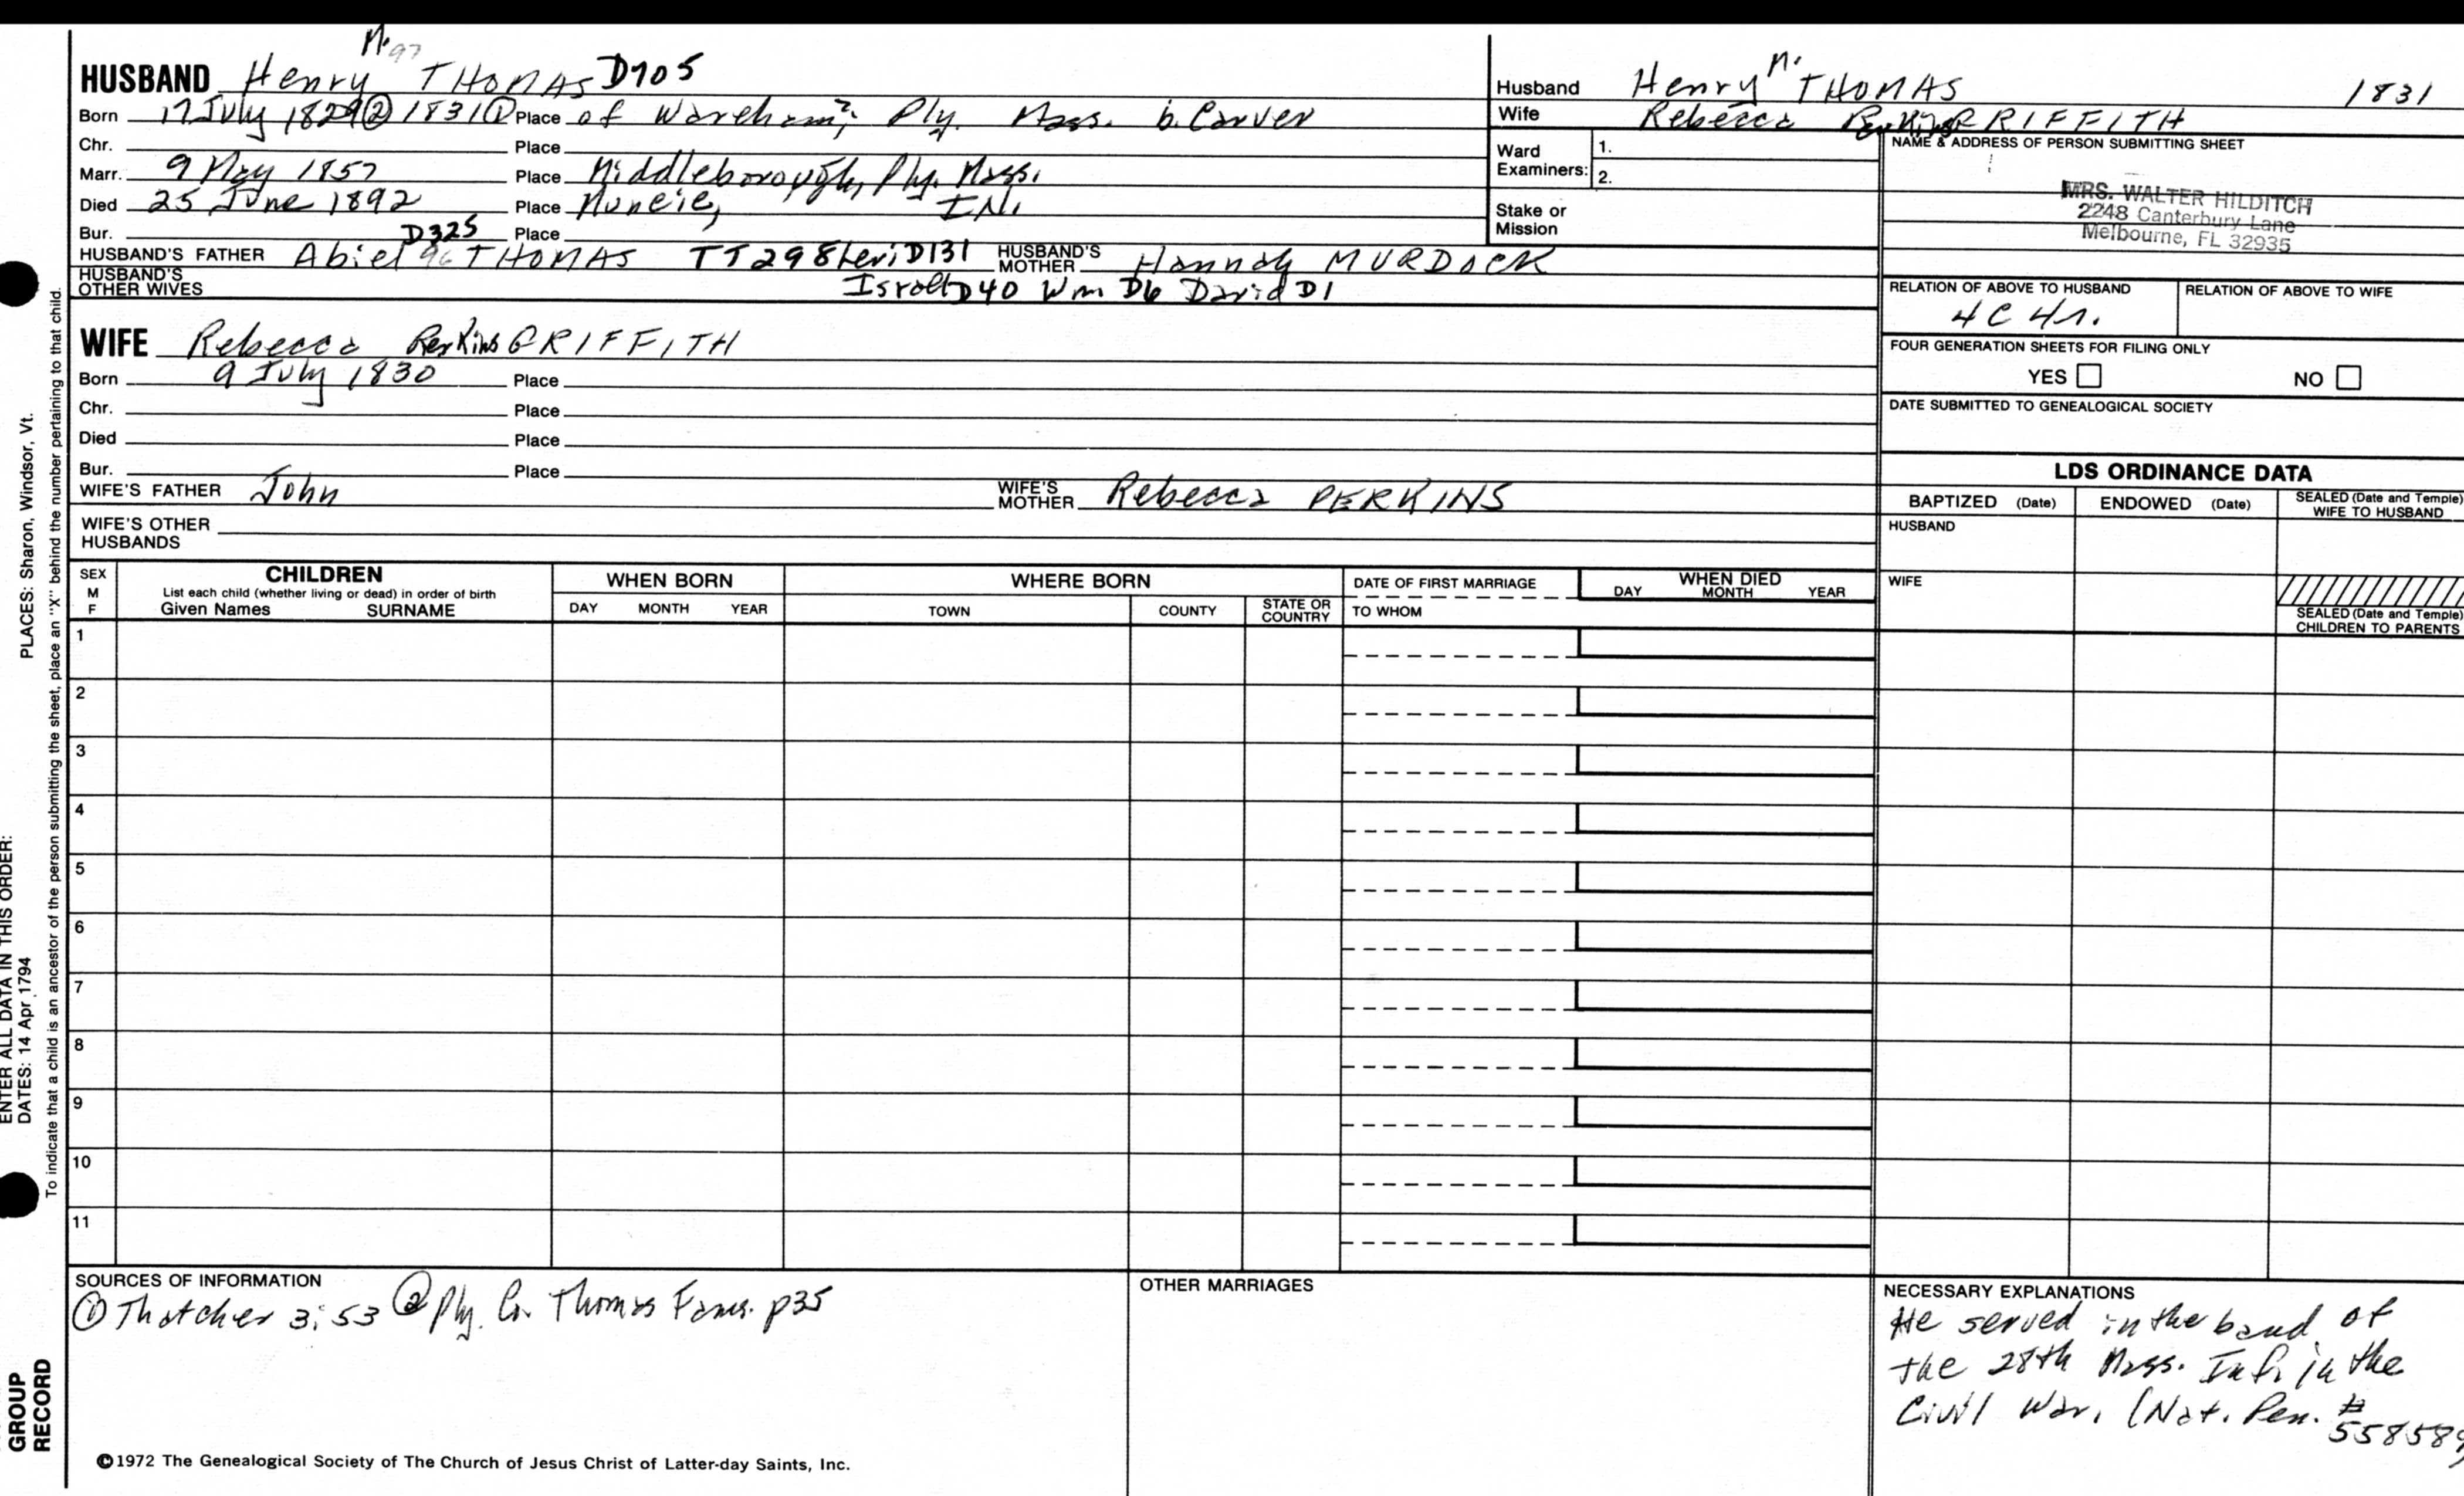 M. 97
HUSBAND Henry THOMAS D705
Born 17 July 1829② 1831① Place of Wareham?, Ply. Mass. b. Carver
Chr. Place
Marr. 9 May 1857 Place Middleborough, Ply. Mass.
Died 25 June 1892 Place Muncie, IN.
Bur. Place
D325
HUSBAND'S FATHER Abiel 96 THOMAS TT298 Levi D131 HUSBAND'S MOTHER Hannah MURDOCK
HUSBAND'S OTHER WIVES Israel D40 Wm D6 David D1
WIFE Rebecca Perkins GRIFFITH
Born 9 July 1830 Place
Chr. Place
Died Place
Bur. Place
WIFE'S FATHER John WIFE'S MOTHER Rebecca PERKINS
WIFE'S OTHER HUSBANDS
Husband Henry M. THOMAS 1831
Wife Rebecca Perkins GRIFFITH
Ward Examiners: 1.
2.
Stake or Mission
NAME & ADDRESS OF PERSON SUBMITTING SHEET
MRS. WALTER HILDITCH
2248 Canterbury Lane
Melbourne, FL 32935
RELATION OF ABOVE TO HUSBAND RELATION OF ABOVE TO WIFE
4C 4r.
FOUR GENERATION SHEETS FOR FILING ONLY
YES NO
DATE SUBMITTED TO GENEALOGICAL SOCIETY
LDS ORDINANCE DATA
BAPTIZED (Date) ENDOWED (Date) SEALED (Date and Temple) WIFE TO HUSBAND
HUSBAND
WIFE
SEALED (Date and Temple) CHILDREN TO PARENTS
SEX M F
CHILDREN
List each child (whether living or dead) in order of birth
Given Names SURNAME
WHEN BORN
DAY MONTH YEAR
WHERE BORN
TOWN COUNTY STATE OR COUNTRY
DATE OF FIRST MARRIAGE
TO WHOM
WHEN DIED
DAY MONTH YEAR
1
2
3
4
5
6
7
8
9
10
11
SOURCES OF INFORMATION
① Thatcher 3:53 ② Ply. Co. Thomas Fams. p35
OTHER MARRIAGES
NECESSARY EXPLANATIONS
He served in the band of
the 28th Mass. Inf. in the
Civil War. (Nat. Pen. #
558589)
©1972 The Genealogical Society of The Church of Jesus Christ of Latter-day Saints, Inc.
GROUP
RECORD
ENTER ALL DATA IN THIS ORDER:
DATES: 14 Apr 1794
PLACES: Sharon, Windsor, Vt.
To indicate that a child is an ancestor of the person submitting the sheet, place an "X" behind the number pertaining to that child.